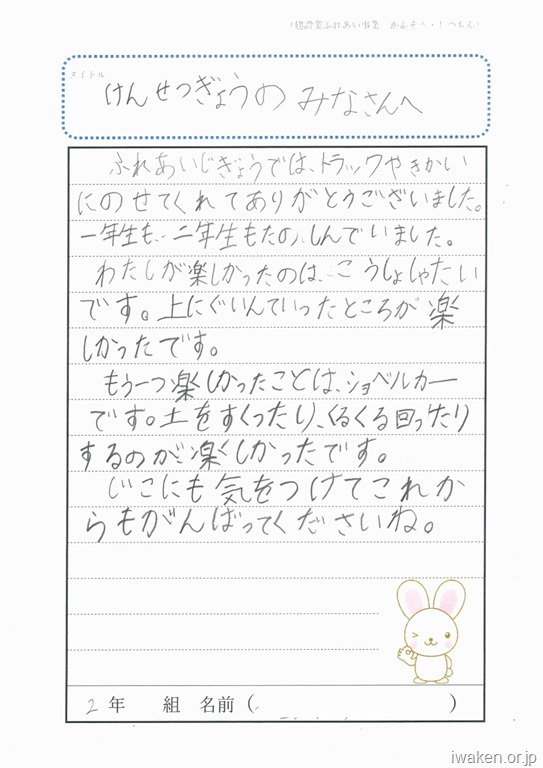 (建設業ふれあい事業 かんそう・
タイトル
けんせつぎょうの みなさんへ
ふれあいじぎょうでは、トラックやきかい
にのせてくれてありがとうございました。
一年生も、二年生もたの、しんでいました。
わたしが楽しかったのは、こうしょしゃたい
です。上にぐいんていったところが楽
しかったです。
もう一つ楽しかったことは、ショベルカー
です。土をすくったり、くるくる回ったり
するのが楽しかったです。
じこにも気をつけてこれか
らもがんばってくださいね。
2年 組 名前( )
iwaken.or.jp